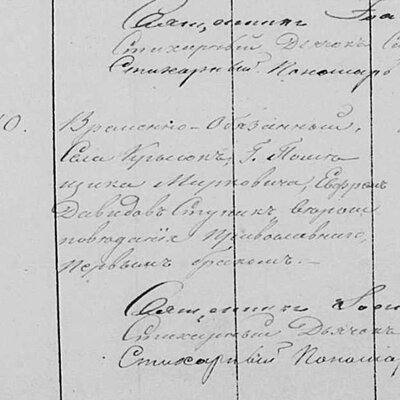 Священникъ Іоа
Стихарный Дьячокъ С
Стихарный Пономарь
10. Временно-обязанный,
Села Крылокъ, Г. Помѣ
щика Мирковича, Ефремъ
Давидовъ Ступикъ, вѣроис
повѣданія Православнаго,
первымъ бракомъ.—
Священникъ Іоан
Стихарный Дьячокъ
Стихарный Пономар